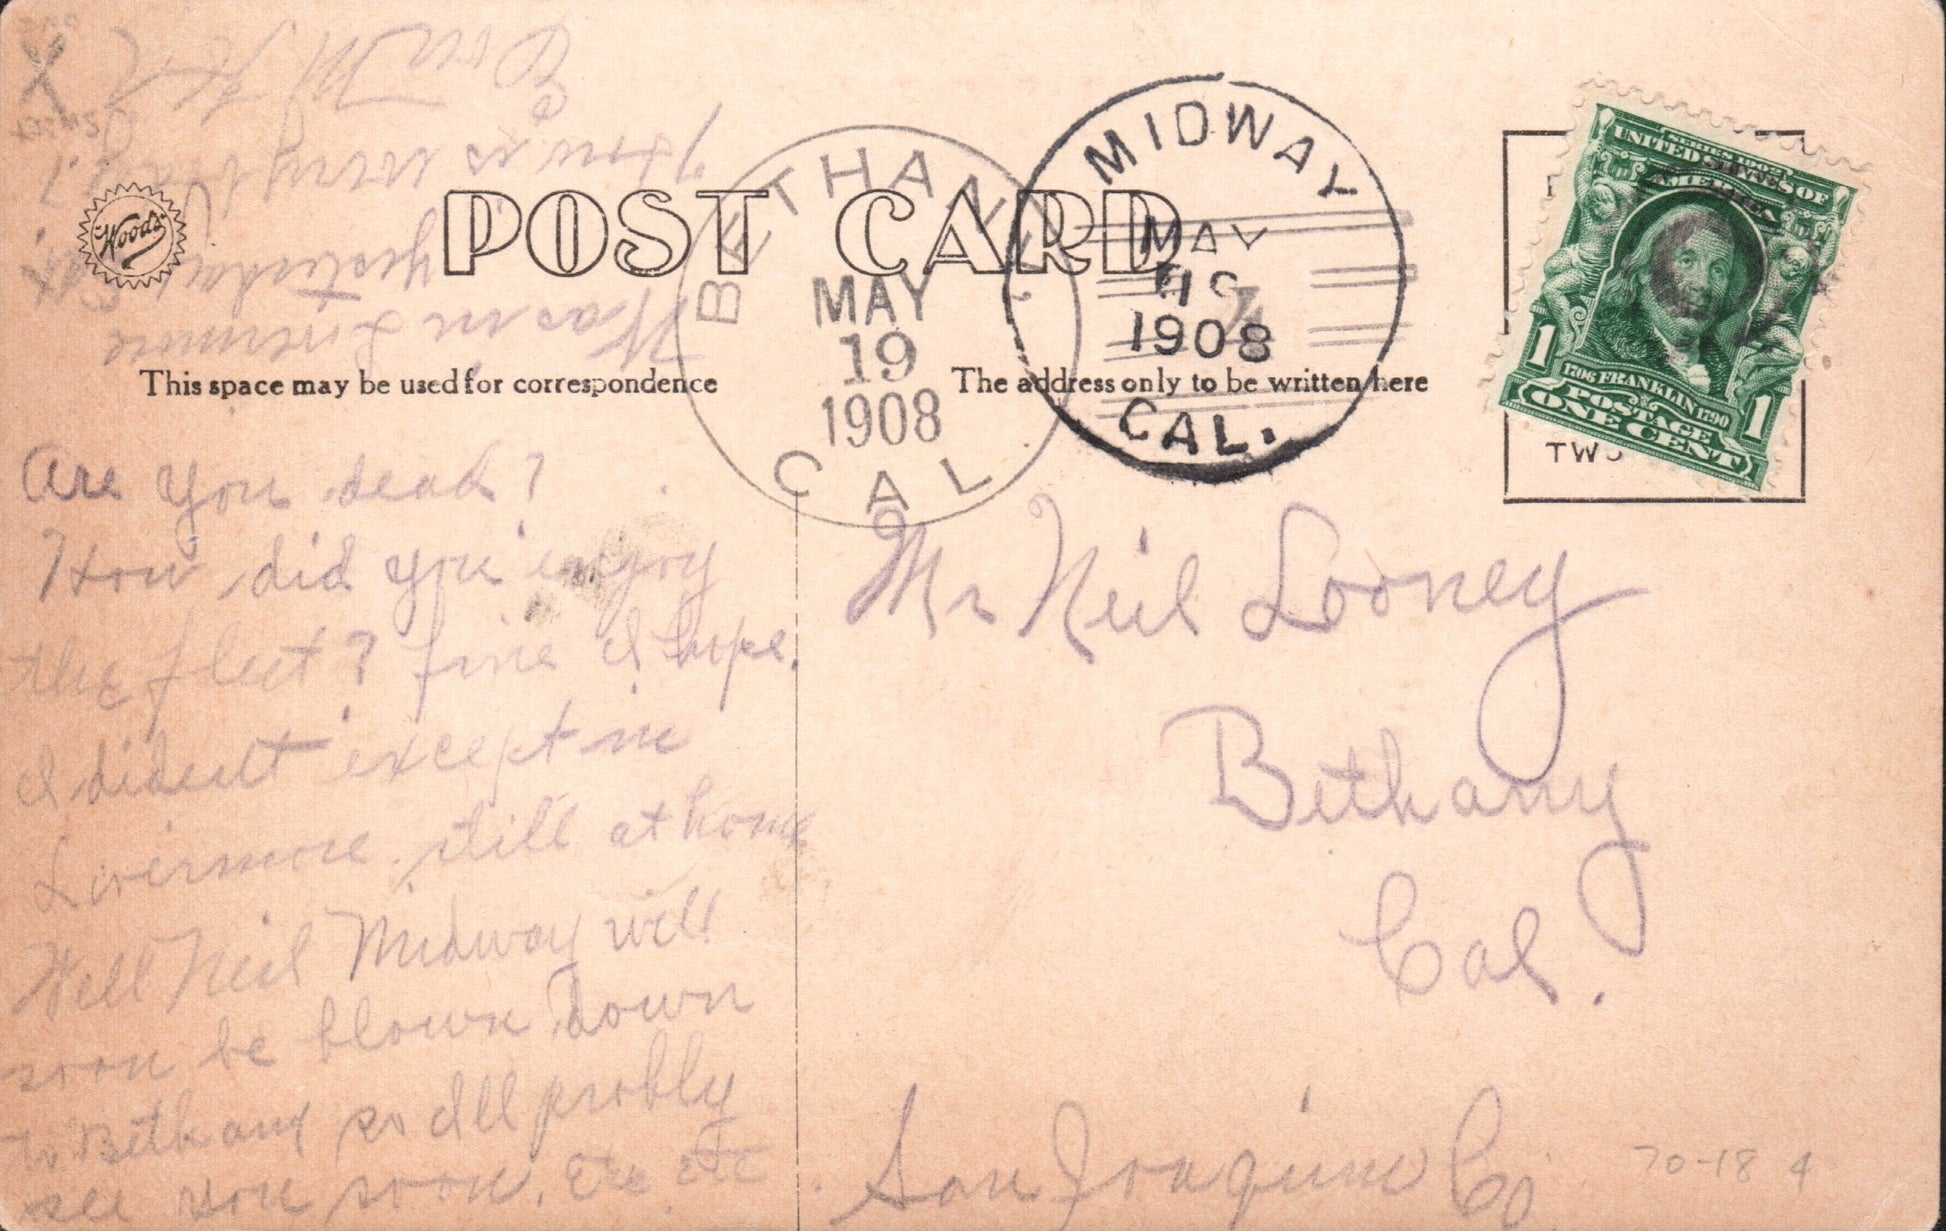 POST CARD
Woods
This space may be used for correspondence
The address only to be written here
BETHANY
MAY
19
1908
CAL.
MIDWAY
MAY
1908
CAL.
SERIES 1902
UNITED STATES OF
AMERICA
1706 FRANKLIN 1790
POSTAGE
1 ONE CENT 1
TWO
Are you dead?
How did you enjoy
the fleet? fine I hope.
I dident except in
Livermore. still at home
Well Neil Midway will
soon be blown down
to Bethany so Ill probly
see you soon. Etc etc.
Was in Livermore
yesterday
is very
Mr Neil Looney
Bethany
Cal.
San Joaquin Co
70-18 4